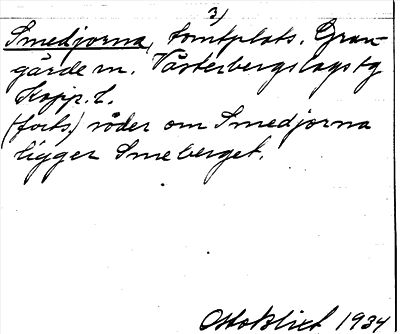 3)
Smedjorna, tomtplats. Gran-
gärde sn. Västerbergslags tg
Kopp. l.
(forts.) söder om Smedjorna
ligger Smeberget.
Otto Blixt 1934